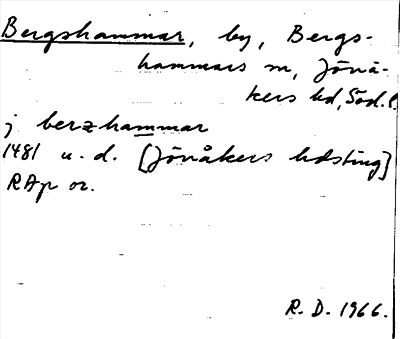 Bergshammar, by, Bergs-
hammars sn, Jönå-
kers hd, Söd. l.
j berzhammar
1481 u. d. [Jönåkers hdsting]
RAp or.
R. D. 1966.